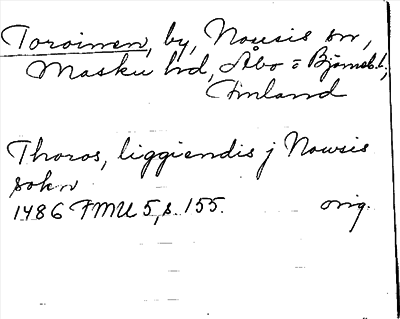 Toroinen, by, Nousis sn,
Masku hd, Åbo = Björneb. l.,
Finland
Thoros, liggiendis j Nowsis
sokn
1486 FMU 5, s. 155. orig.